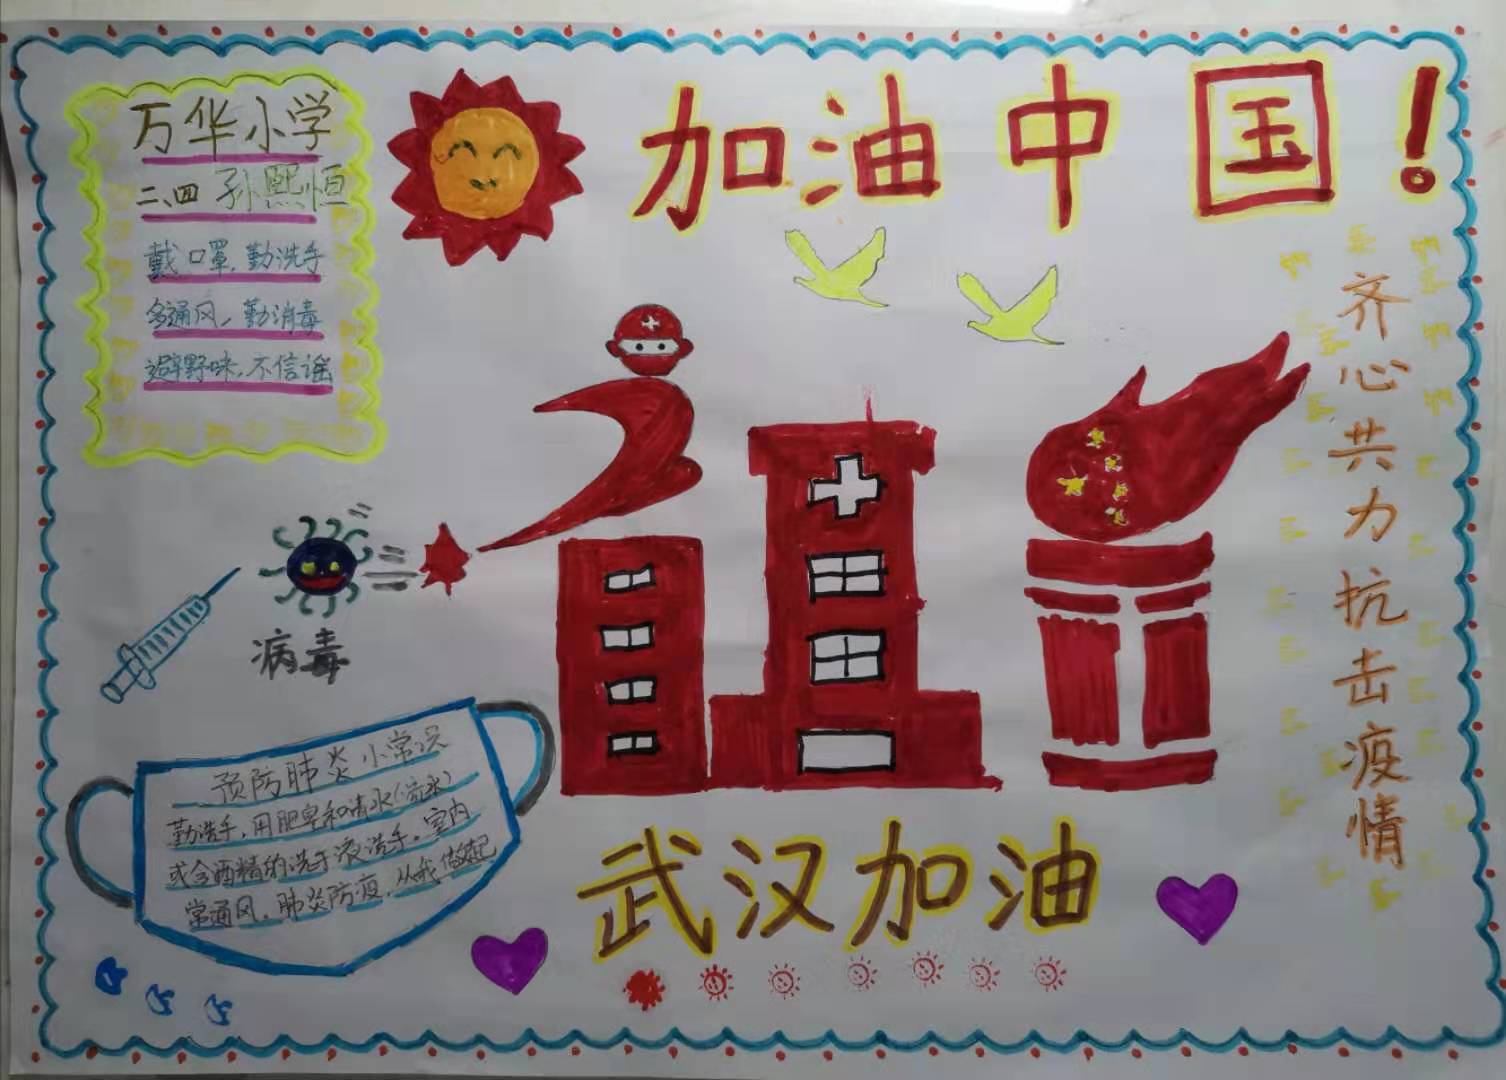 万华小学
二、四 孙熙恒
戴口罩，勤洗手
多通风，勤消毒
避野味，不信谣
加油中国！
齐心共力抗击疫情
病毒
预防肺炎小常识
勤洗手，用肥皂和清水(流水)
或含酒精的洗手液洗手。室内
常通风。肺炎防疫，从我做起
武汉加油